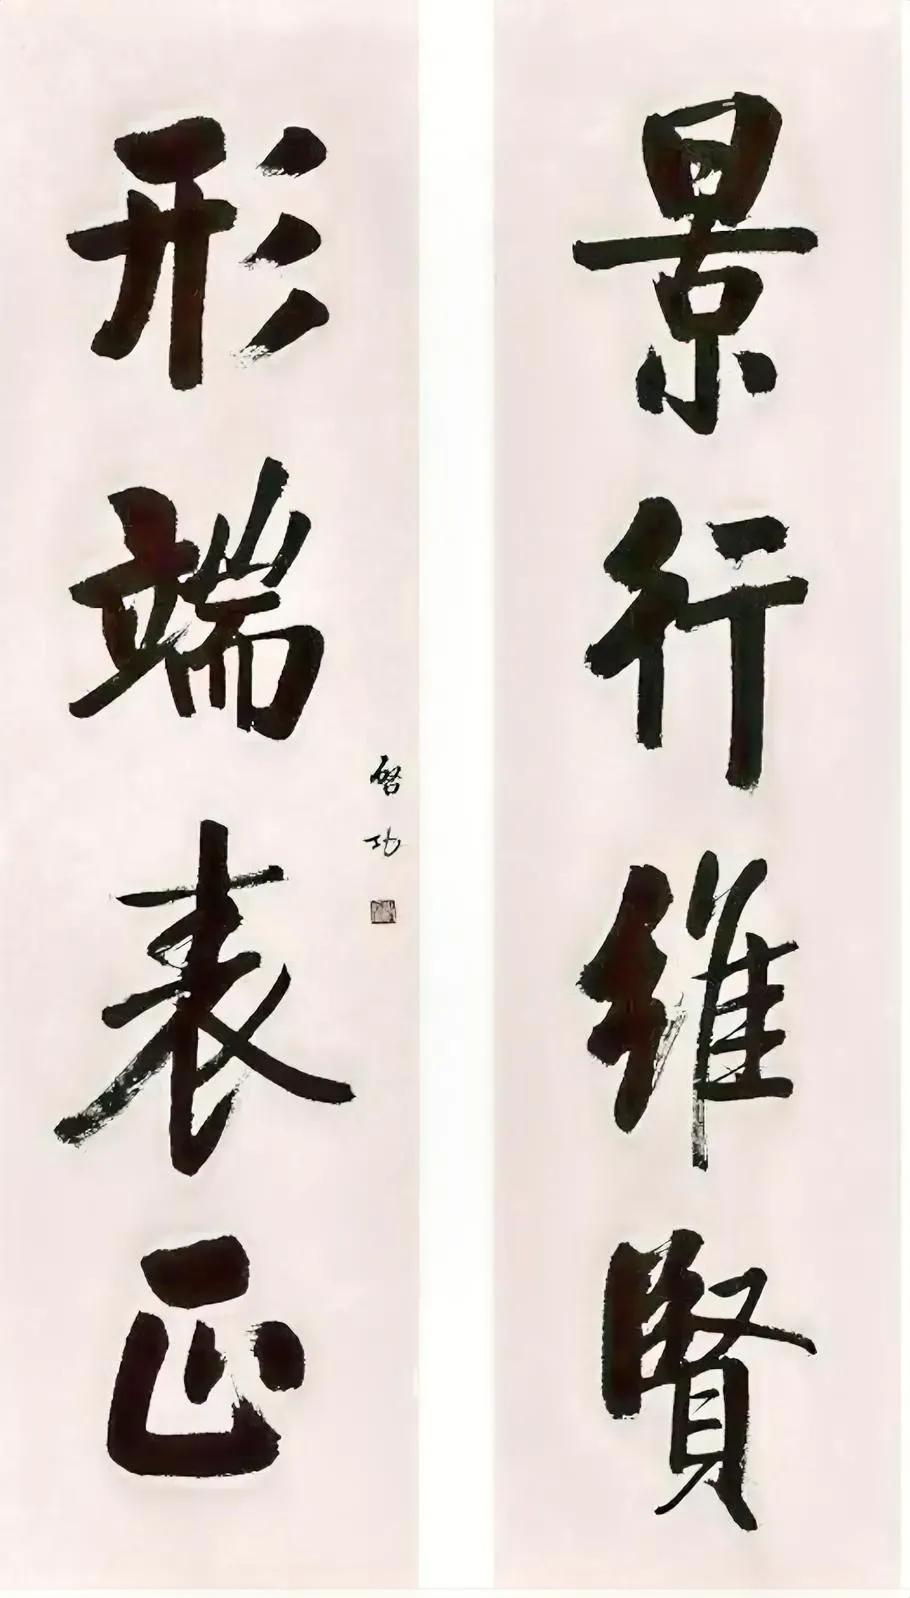 景行維賢
形端表正
啓功